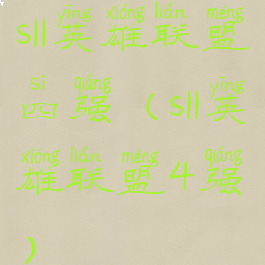 yīng xióng lián méng
sll英雄联盟
sì qiáng yīng
四强(sll英
xióng lián méng qiáng
雄联盟4强
)